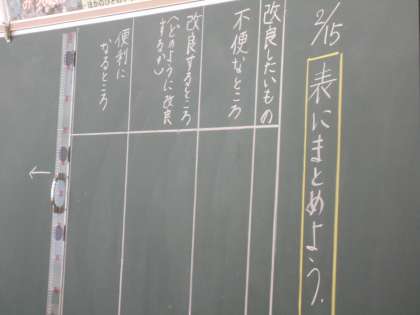 2/15
表にまとめよう.
改良したいもの
不便なところ
改良するところ
(どのように改良
するか)
便利に
なるところ
←